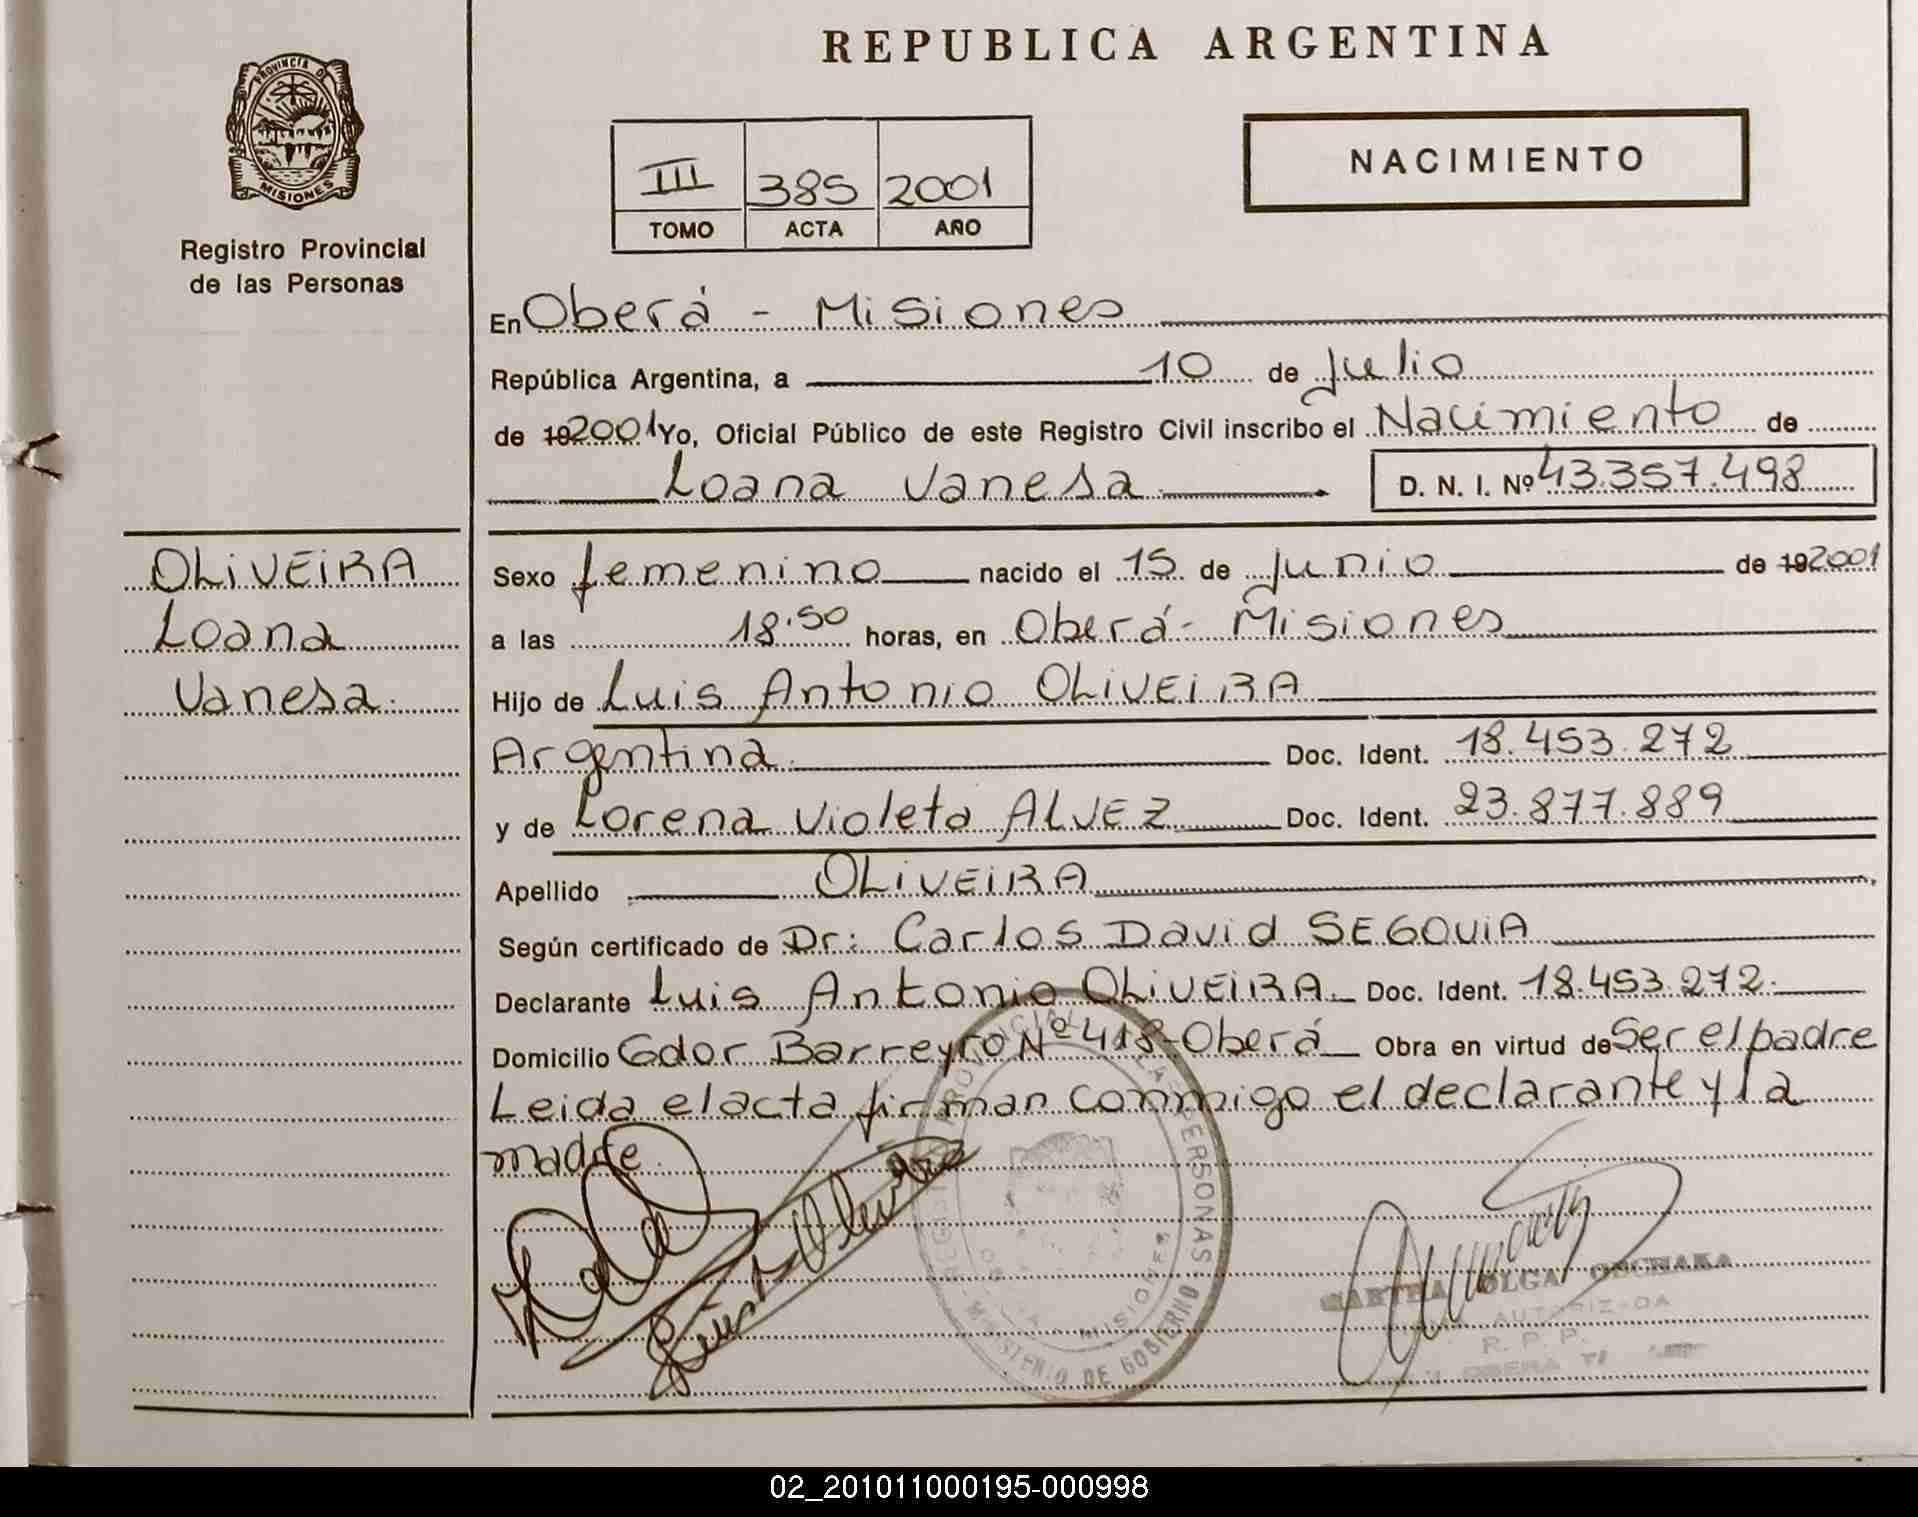 REPUBLICA ARGENTINA
PROVINCIA D
MISIONES
Registro Provincial
de las Personas
NACIMIENTO
III 385 2001
TOMO ACTA AÑO
En Oberá - Misiones
República Argentina, a 10 de Julio
de 192001 Yo, Oficial Público de este Registro Civil inscribo el Nacimiento de
Loana Vanesa D. N. I. Nº 43.357.498
OLIVEIRA
Loana
Vanesa.
Sexo femenino nacido el 15 de Junio de 192001
a las 18.50 horas, en Oberá - Misiones
Hijo de Luis Antonio OLIVEIRA
Argentina. Doc. Ident. 18.453.272
y de Lorena Violeta ALVEZ Doc. Ident. 23.877.889
Apellido OLIVEIRA
Según certificado de Dr: Carlos David SEGOVIA
Declarante Luis Antonio OLIVEIRA. Doc. Ident. 18.453.272.
Domicilio Gdor Barreyro Nº 418-Oberá Obra en virtud de Ser el padre
Leida el acta firman conmigo el declarante y la
madre.
PROVINCIAL LAS PERSONAS
MISIONES
MINISTERIO DE GOBIERNO
OLGA
AUTORIZADA
R. P. P.
OBERA
02_201011000195-000998